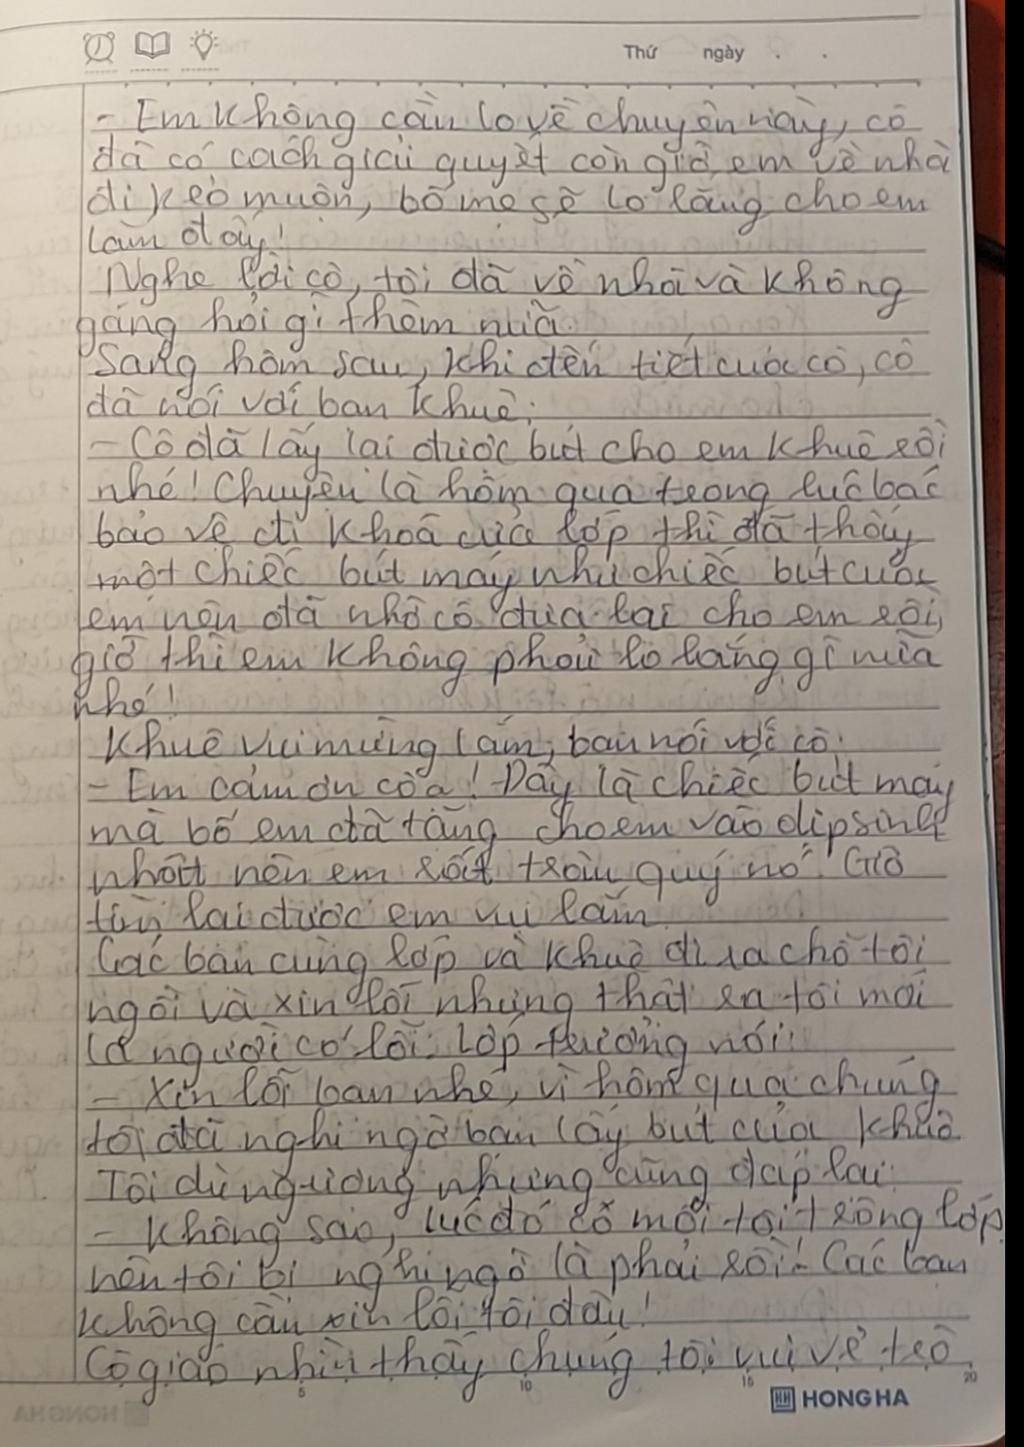 Thứ ngày . .
- Em không cần lo về chuyện này, cô
đã có cách giải quyết còn giờ em về nhà
đi kẻo muộn, bố mẹ sẽ lo lắng cho em
lắm đấy!
Nghe lời cô, tôi đã về nhà và không
gáng hỏi gì thêm nữa.
Sáng hôm sau, khi đến tiết của cô, cô
đã nói với bạn Khuê:
- Cô đã lấy lại được bút cho em Khuê rồi
nhé! Chuyện là hôm qua trong lúc bác
bảo vệ đi khoá cửa lớp thì đã thấy
một chiếc bút máy như chiếc bút của
em nên đã nhờ cô đưa lại cho em rồi,
giờ thì em không phải lo lắng gì nữa
nhé!
Khuê vui mừng lắm, bạn nói với cô:
- Em cảm ơn cô ạ! Đây là chiếc bút máy
mà bố em đã tặng cho em vào dịp sinh
nhật nên em rất trân quý nó. Giờ
tìm lại được em vui lắm.
Các bạn cùng lớp và Khuê đi ra chỗ tôi
ngồi và xin lỗi nhưng thật ra tôi mới
là người có lỗi. Lớp trưởng nói:
- Xin lỗi bạn nhé, vì hôm qua chúng
tôi đã nghi ngờ bạn lấy bút của Khuê.
Tôi dù ngượng nhưng cũng đáp lại:
- Không sao, lúc đó có mỗi tôi trong lớp
nên tôi bị nghi ngờ là phải rồi! Các bạn
không cần xin lỗi tôi đâu!
Cô giáo nhìn thấy chúng tôi vui vẻ trò
5 10 15 20
HONG HA